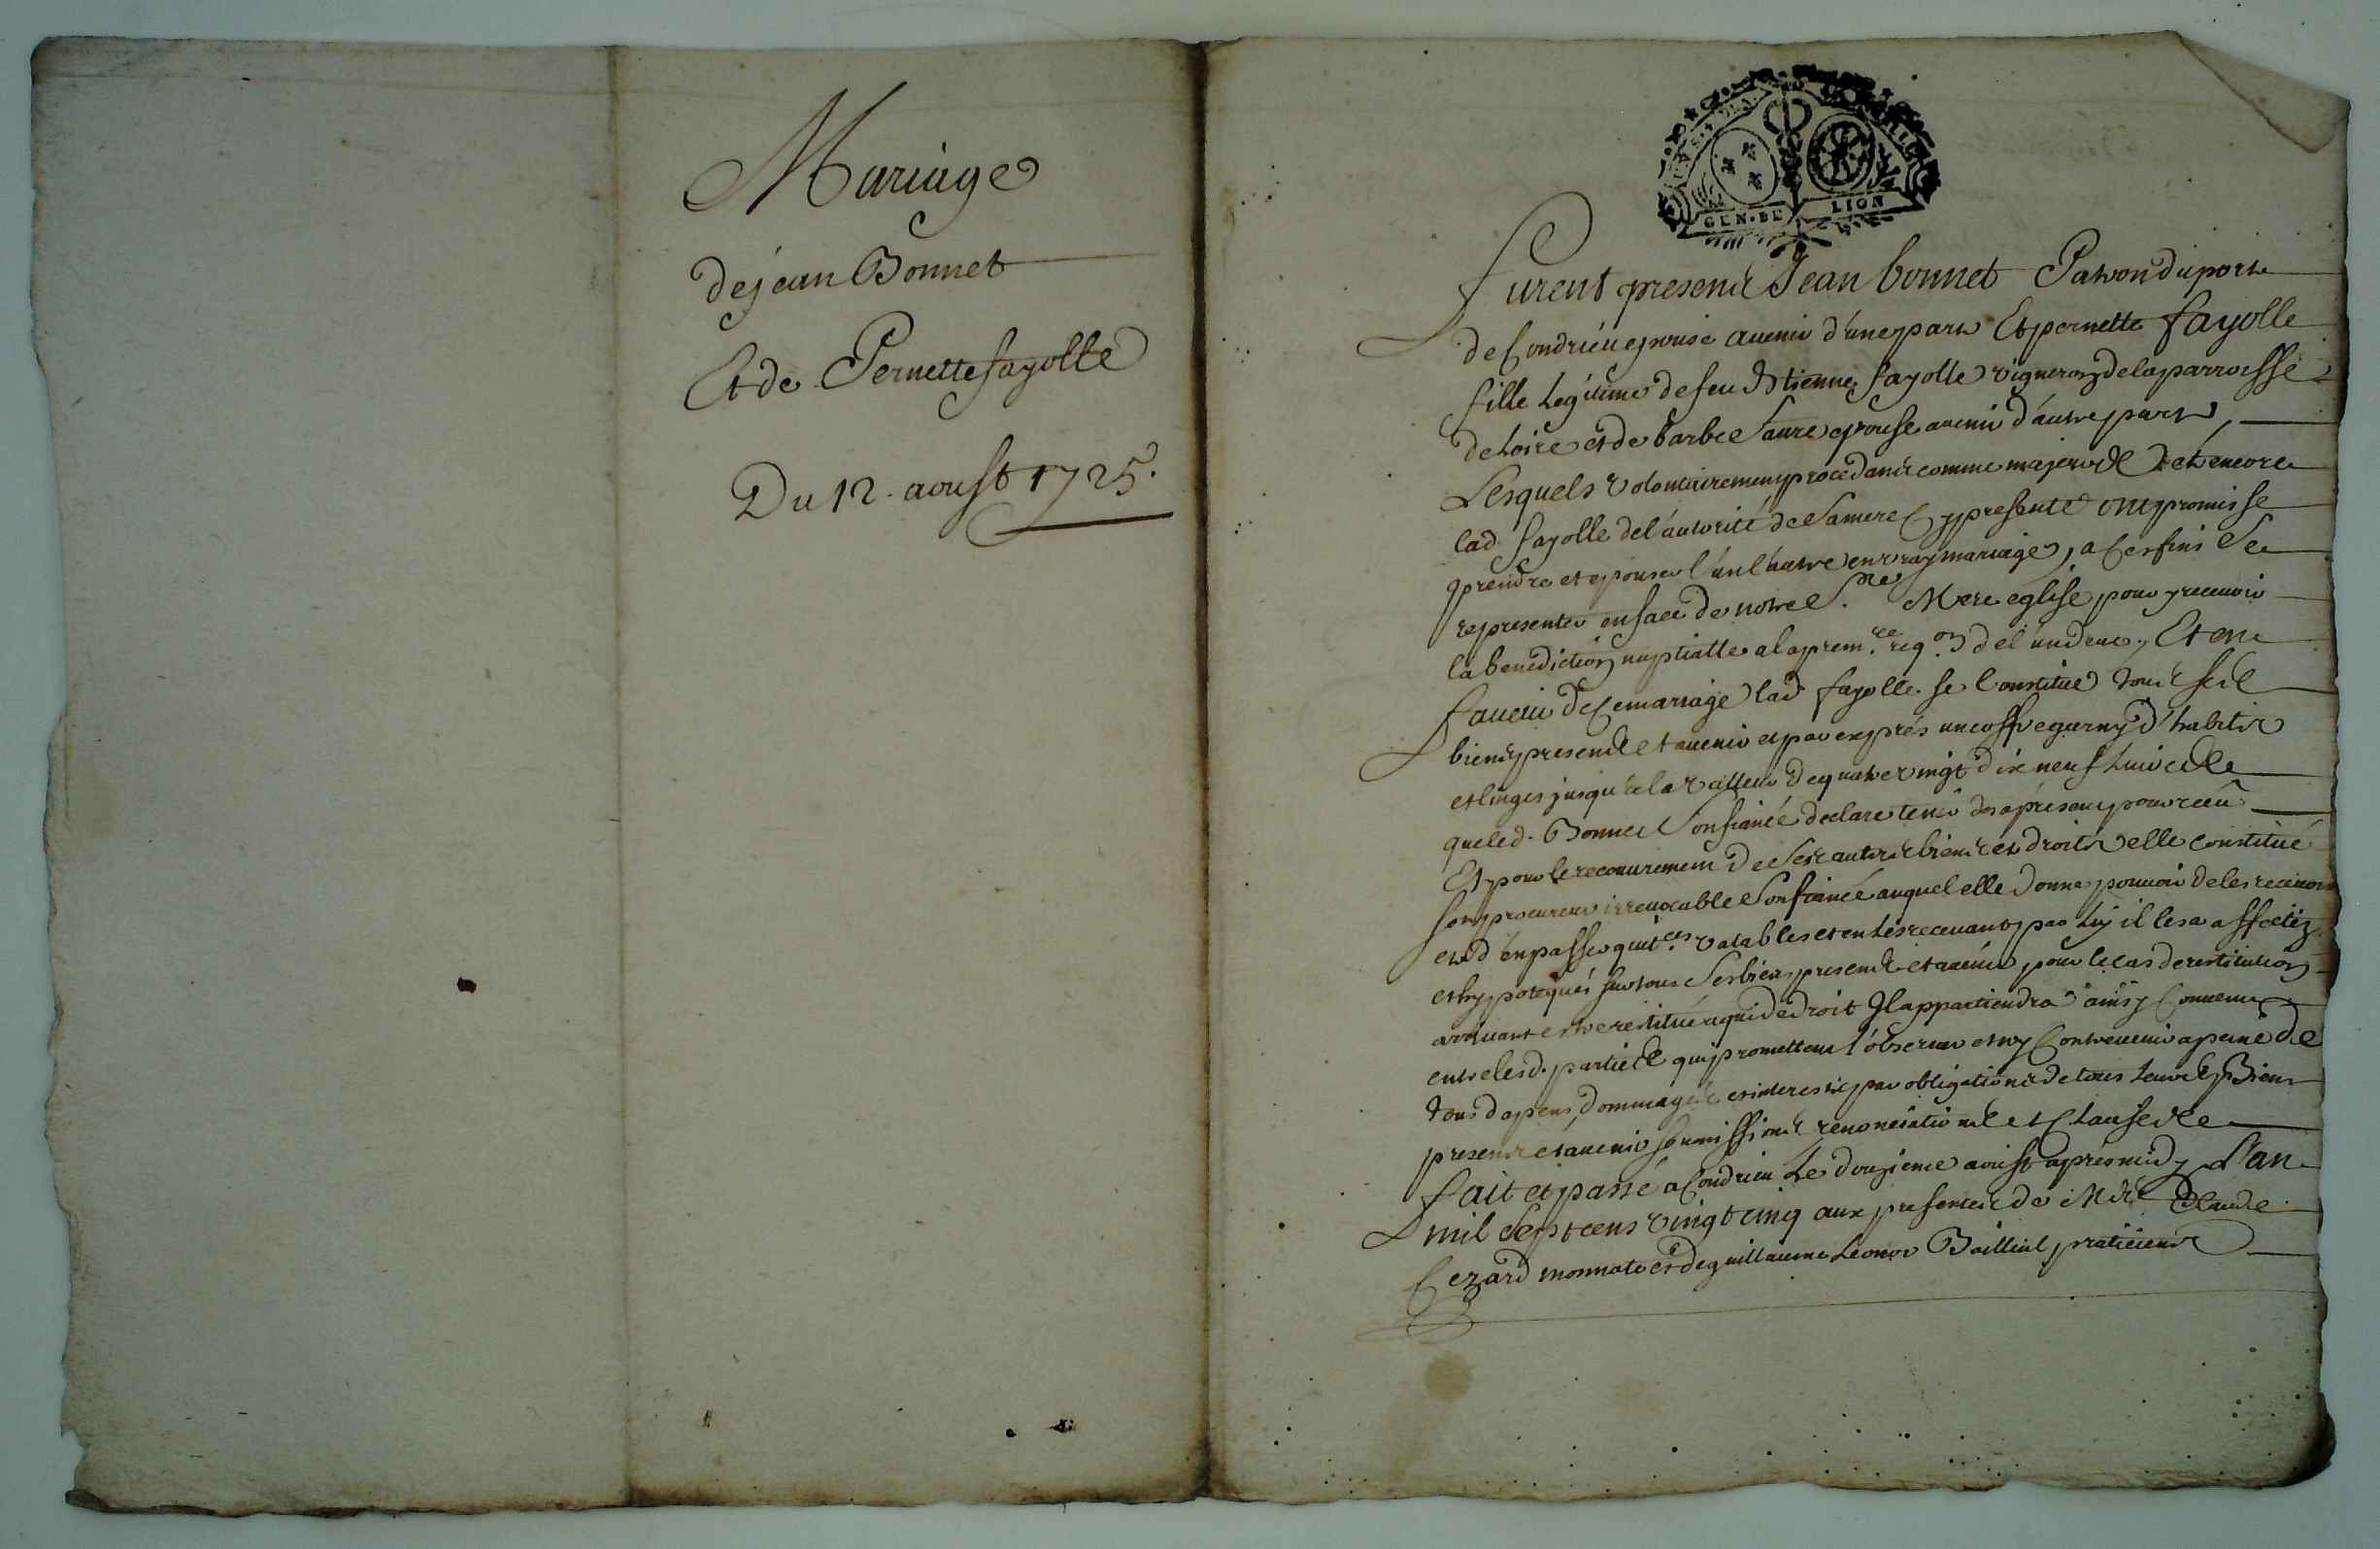 Mariage
de jean Bonnet
Et de Pernette fayolle
Du 12. aoust 1725.
GEN. DE LION
furent presents Jean bonnet Patron du port
de Condrieu epouse avenir d'une part Et pernette fayolle
fille Legitime de feu Estienne fayolle vigneron de la parroisse
de Loire et de barbe faure epouse avenir d'autre part,
Lesquels volontairement procedants comme majeurs et encore
lad. fayolle de l'autorité de Sa mere Cy presente ont promis se
prendre et epouser l'un l'autre en vray mariage, a Ces fins Se
representer en face de notre Ste Mere eglise pour y recevoir
la benediction nuptialle a la premre reqon de l'un deux, Et en
faveur de Ce mariage lad fayolle se Constitue tous ses
biens presents et avenir et par exprés un coffre garny d'habits
et linges jusqu'a la valleur de quatre vingt dix neuf Livres
que led. Bonnet Son fiancé declare tenir des apresent pour receu
Et pour le recouvrement de Ses autres biens et droits elle constitue
son procureur irrevocable Son fiancé auquel elle donne pouvoir de les recevoir
et d'en passer quitces valables et en Les recevant par Luy il les a affectéz
et hypotequés sur tous Ses biens presents et avenir pour le cas de restitution
arrivant estre restitué a qui de droit Il appartiendra ainsy Convenu
entre lesd. parties qui promettent l'observer et n'y Contrevenir a peine de
tous depens, dommages et interests par obligations de tous Leurs Biens
presents et avenir soumissions renonciations et Clauses
fait et passé a Condrieu Le douzieme aoust aprés midy L'an
mil Sept cens vingt cinq aux presences de Claude
Cezard monnate et de guillaume Leonor Bailleul praticiens